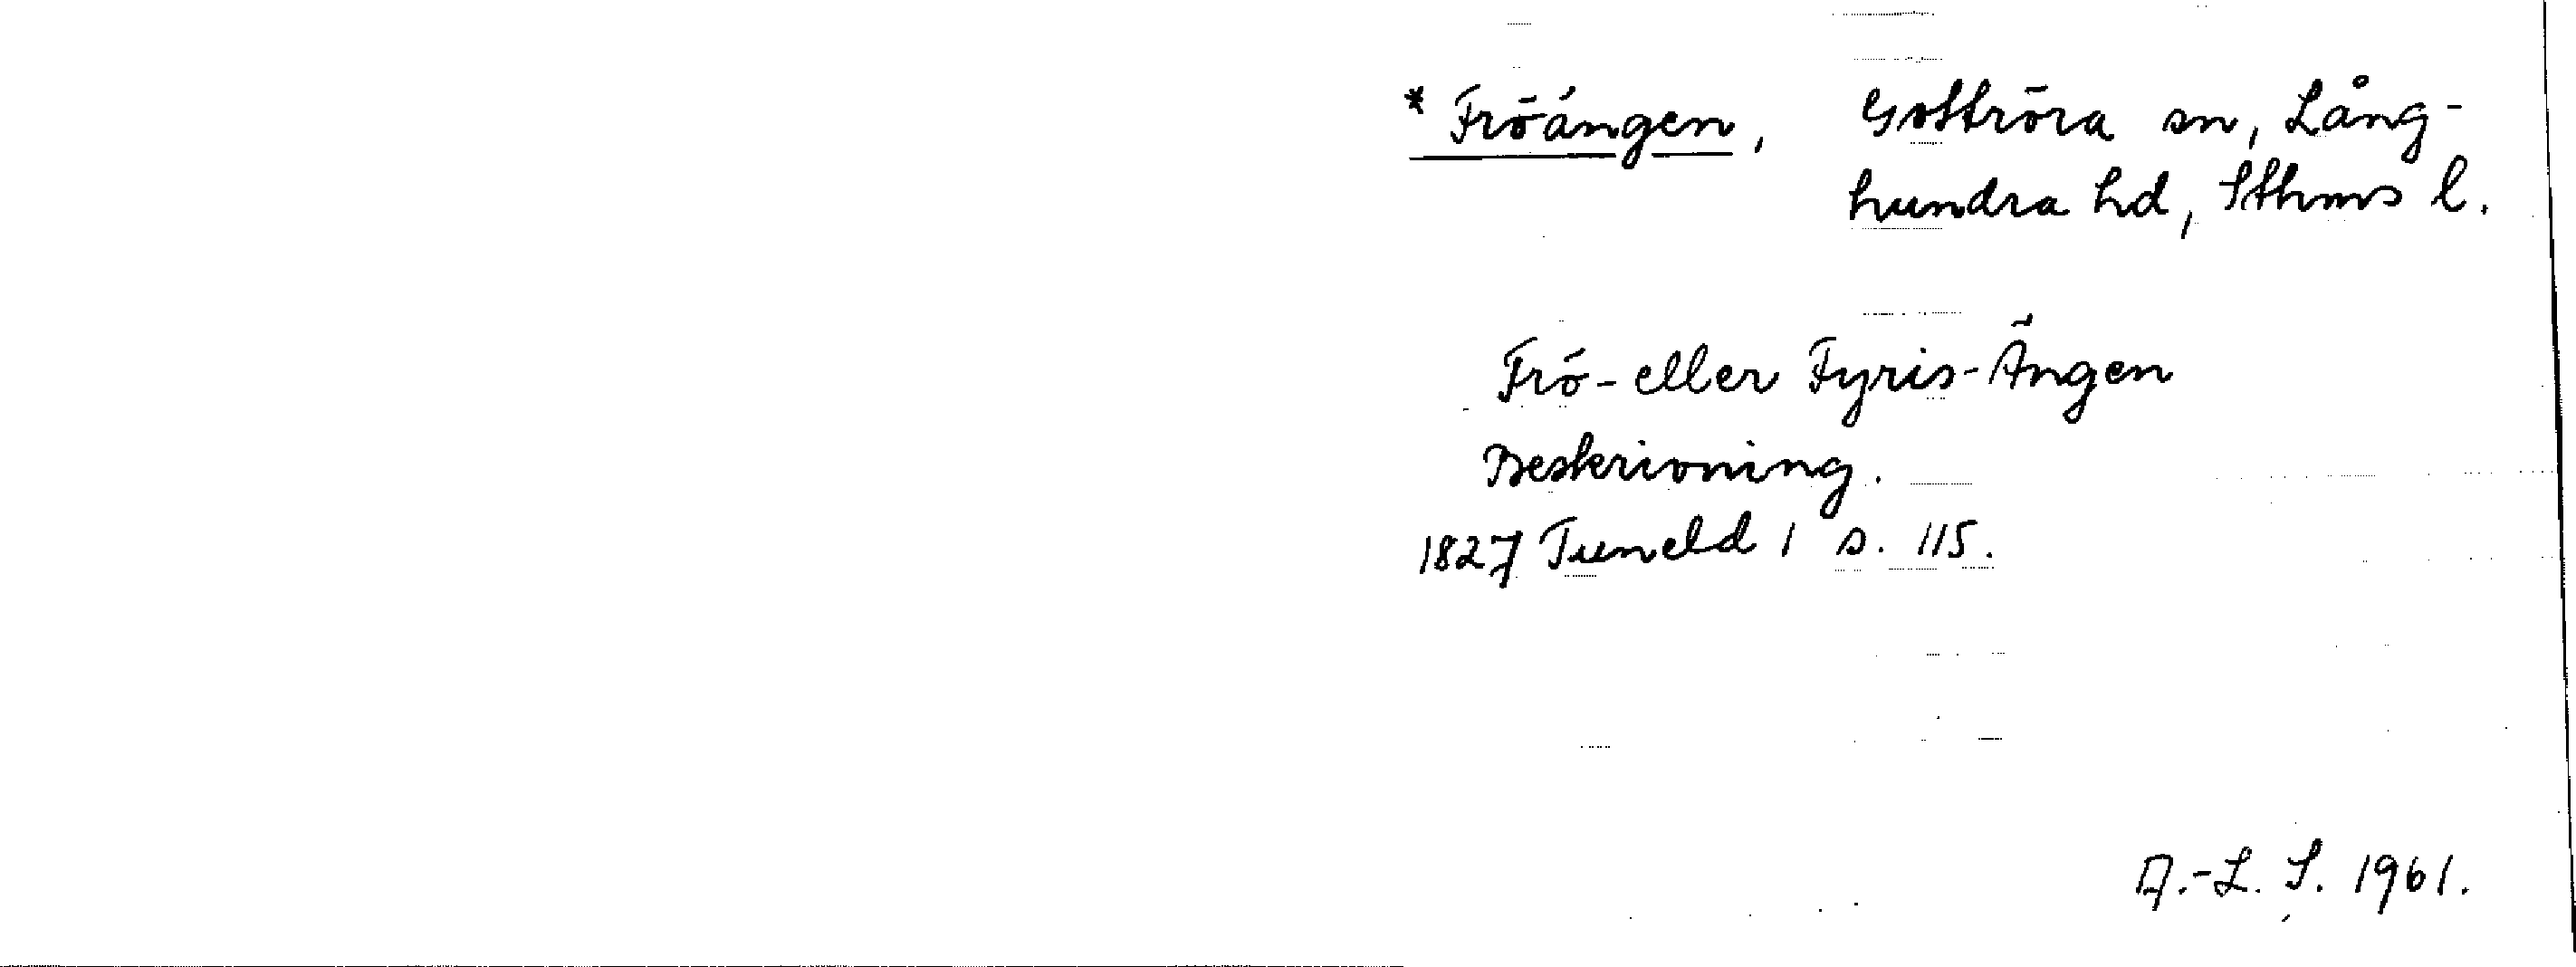 * Fröängen, Gottröra sn, Lång-
hundra hd, Sthms l.
Frö- eller Fyris-Ängen
Beskrivning.
1827 Tuneld 1 s. 115.
A.-L. S. 1961.